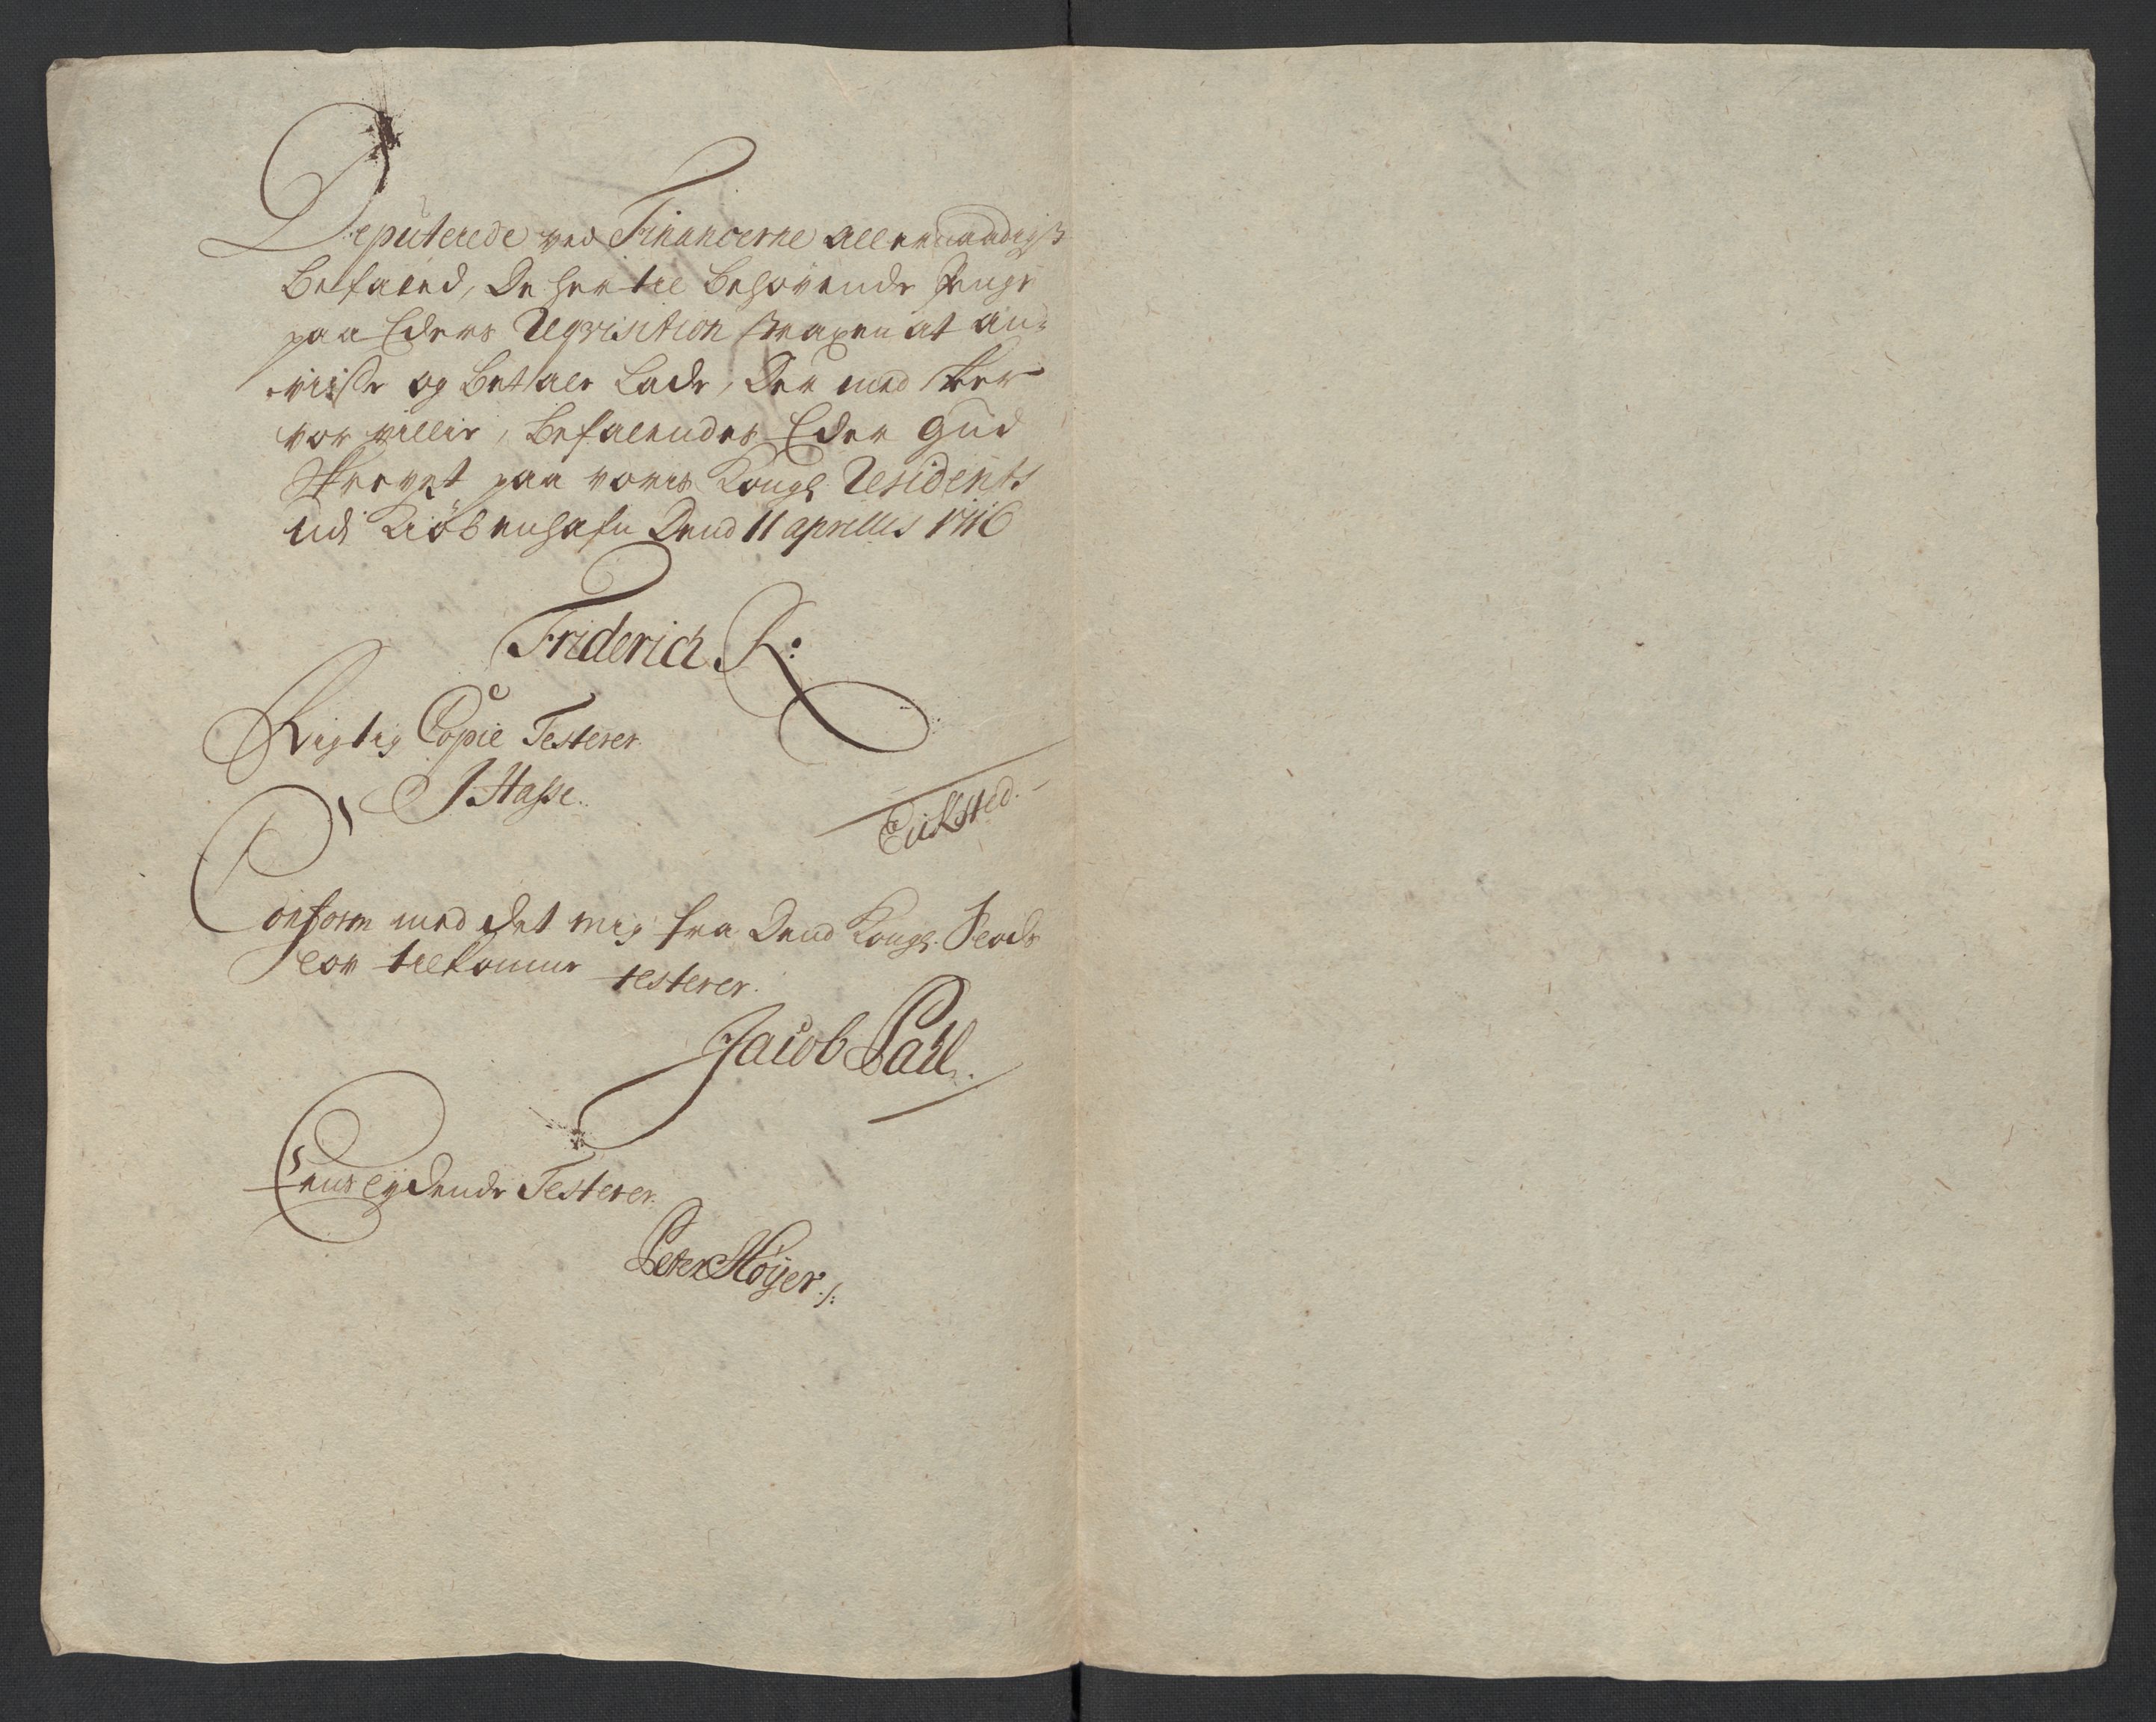 Deputerede ved Financerne allernaadigst
Befaled, De her til behøvende Penge
paa Eders Reqvisition straxen at an-
viise og betale lade, Der med skeer
vor villie, Befalendes Eder Gud
Skrevet paa voris Kongl. Residents
udi Kiøbenhafn Dend 11 aprillis 1716
Friderich R:
Rigtig Copie Testerer
J Hasse.
Eicksted.
Conform med det mig fra Dend Kongl.
tilkomne testerer.
Jacob
Eenslydende Testerer.
Peter Høyer ./.